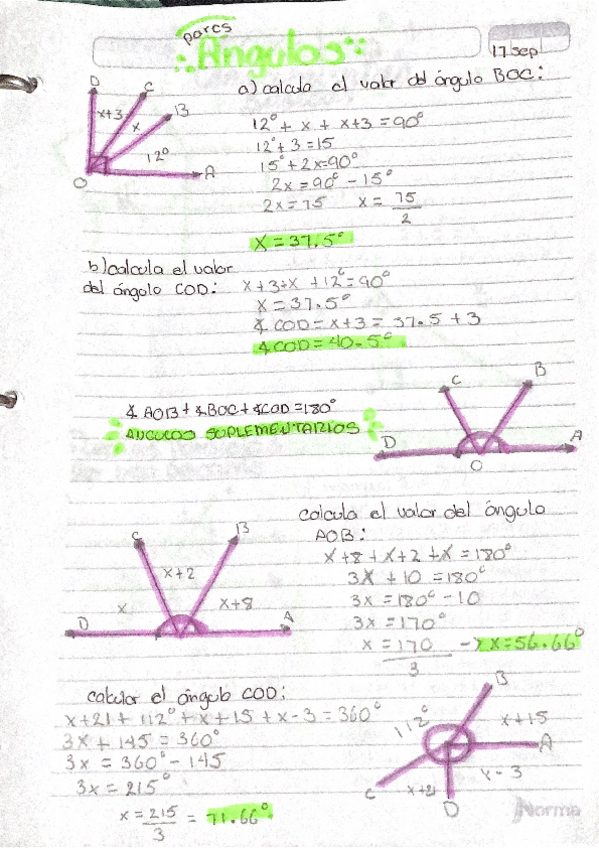 pares
Ángulos
17 sep
a) calcula el valor del ángulo BOC:
D
C
B
x+3
x
12°
A
O
12° + x + x+3 = 90°
12°+3=15
15°+2x=90°
2x=90°-15°
2x=75 x=75/2
x=37.5°
b) calcula el valor
del ángulo COD:
x+3+x+12°=90°
x=37.5°
∡COD=x+3=37.5+3
∡COD=40.5°
∡AOB+∡BOC+∡COD=180°
ANGULOS SUPLEMENTARIOS
C
B
D
A
O
calcula el valor del ángulo
AOB:
C
B
x+2
x
x+8
D
A
x+8+x+2+x=180°
3x+10=180°
3x=180°-10
3x=170°
x=170/3 → x=56.66°
calcular el ángulo COD:
x+21+112°+x+15+x-3=360°
3x+145=360°
3x=360°-145
3x=215°
x=215/3=71.66°
B
112°
x+15
A
x-3
C
x+21
D
Norma